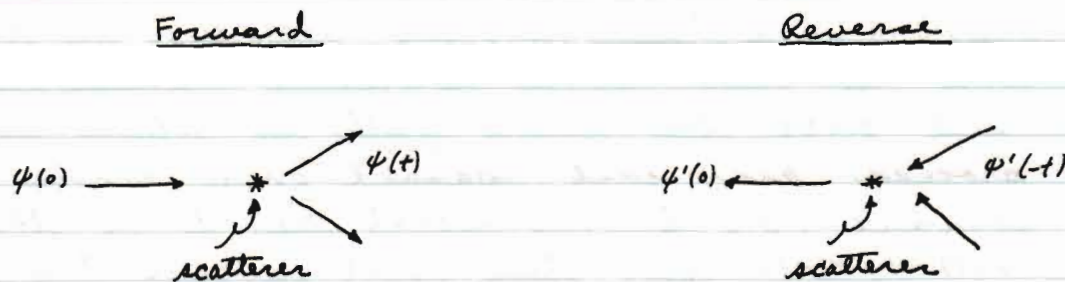 Forward Reverse
ψ(0) ψ(t) ψ'(0) ψ'(-t)
scatterer scatterer